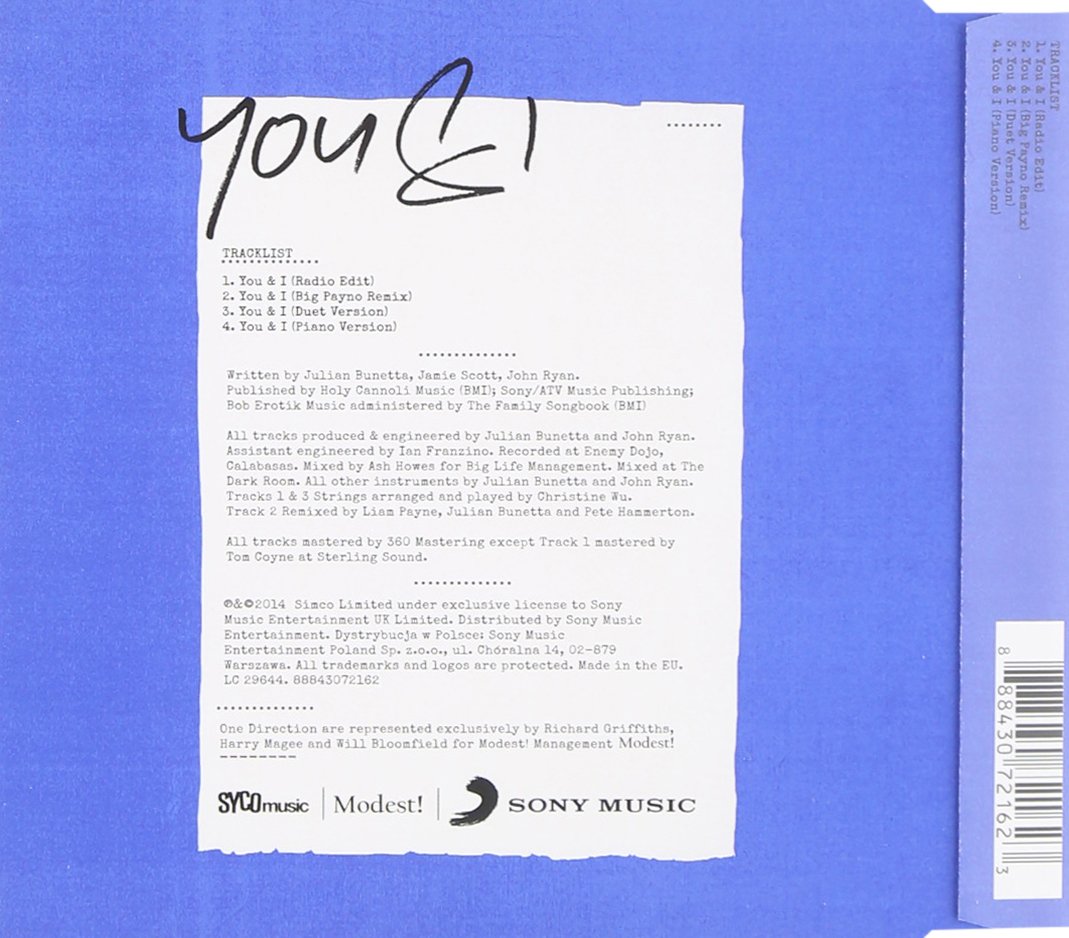 you & I
TRACKLIST
1. You & I (Radio Edit)
2. You & I (Big Payno Remix)
3. You & I (Duet Version)
4. You & I (Piano Version)
Written by Julian Bunetta, Jamie Scott, John Ryan.
Published by Holy Cannoli Music (BMI); Sony/ATV Music Publishing;
Bob Erotik Music administered by The Family Songbook (BMI)
All tracks produced & engineered by Julian Bunetta and John Ryan.
Assistant engineered by Ian Franzino. Recorded at Enemy Dojo,
Calabasas. Mixed by Ash Howes for Big Life Management. Mixed at The
Dark Room. All other instruments by Julian Bunetta and John Ryan.
Tracks 1 & 3 Strings arranged and played by Christine Wu.
Track 2 Remixed by Liam Payne, Julian Bunetta and Pete Hammerton.
All tracks mastered by 360 Mastering except Track 1 mastered by
Tom Coyne at Sterling Sound.
℗&©2014 Simco Limited under exclusive license to Sony
Music Entertainment UK Limited. Distributed by Sony Music
Entertainment. Dystrybucja w Polsce: Sony Music
Entertainment Poland Sp. z.o.o., ul. Chóralna 14, 02-879
Warszawa. All trademarks and logos are protected. Made in the EU.
LC 29644. 88843072162
One Direction are represented exclusively by Richard Griffiths,
Harry Magee and Will Bloomfield for Modest! Management Modest!
SYCOmusic
Modest!
SONY MUSIC
TRACKLIST
1. You & I (Radio Edit)
2. You & I (Big Payno Remix)
3. You & I (Duet Version)
4. You & I (Piano Version)
8 88430 72162 3